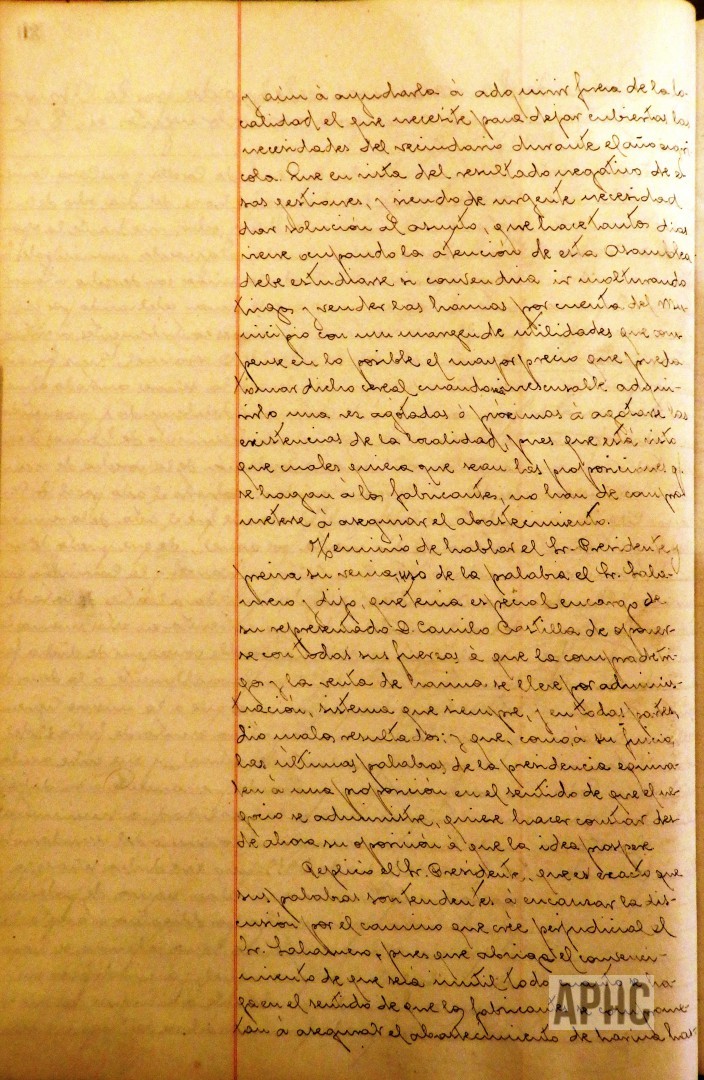 y aún à ayudarla à adquirir fuera de la lo-
calidad, el que necesite para dejar cubiertas las
necesidades del vecindario durante el año agrí-
cola. Que en vista del resultado negativo de e-
sas gestiones, y siendo de urgente necesidad
dar solución al asunto, que hace tantos días
viene ocupando la atención de esta Asamblea
debe estudiarse si convendria ir molturando
trigos y vender las harinas por cuenta del Mu-
nicipio con un margen de utilidades que com-
pense en lo posible el mayor precio que pueda
tomar dicho cereal cuando sea inescusable adqui-
rirlo una vez agotadas ó próximas à agotarse las
existencias de la localidad, pues que está visto
que cuales quiera que sean las proposiciones q.
se hagan à los fabricantes, no han de compro-
meterse à asegurar el abastecimiento.
Terminó de hablar el Sr. Presidente, y
previa su venia, usó de la palabra el Sr. Sala-
mero y dijo, que tenia especial encargo de
su representado D. Camilo Castilla de oponer-
se con todas sus fuerzas à que la compra de tri-
gos y la venta de harina se lleve por adminis-
tración, sistema que siempre, y en todas partes,
dió malos resultados: y que, como, à su juicio,
las últimas palabras de la presidencia equiva-
len à una proposición en el sentido de que el ne-
gocio se administre, quiere hacer constar des-
de ahora su oposición à que la idea prospere
Replicó el Sr. Presidente, que es exacto que
sus palabras son tendentes à encauzar la dis-
cusión por el camino que cree perjudicial el
Sr. Salamero, pues que abriga el convenci-
miento de que será inútil todo cuanto se ha-
ga en el sentido de que los fabricantes se comprome-
tan à asegurar el abastecimiento de harina has-
APHC